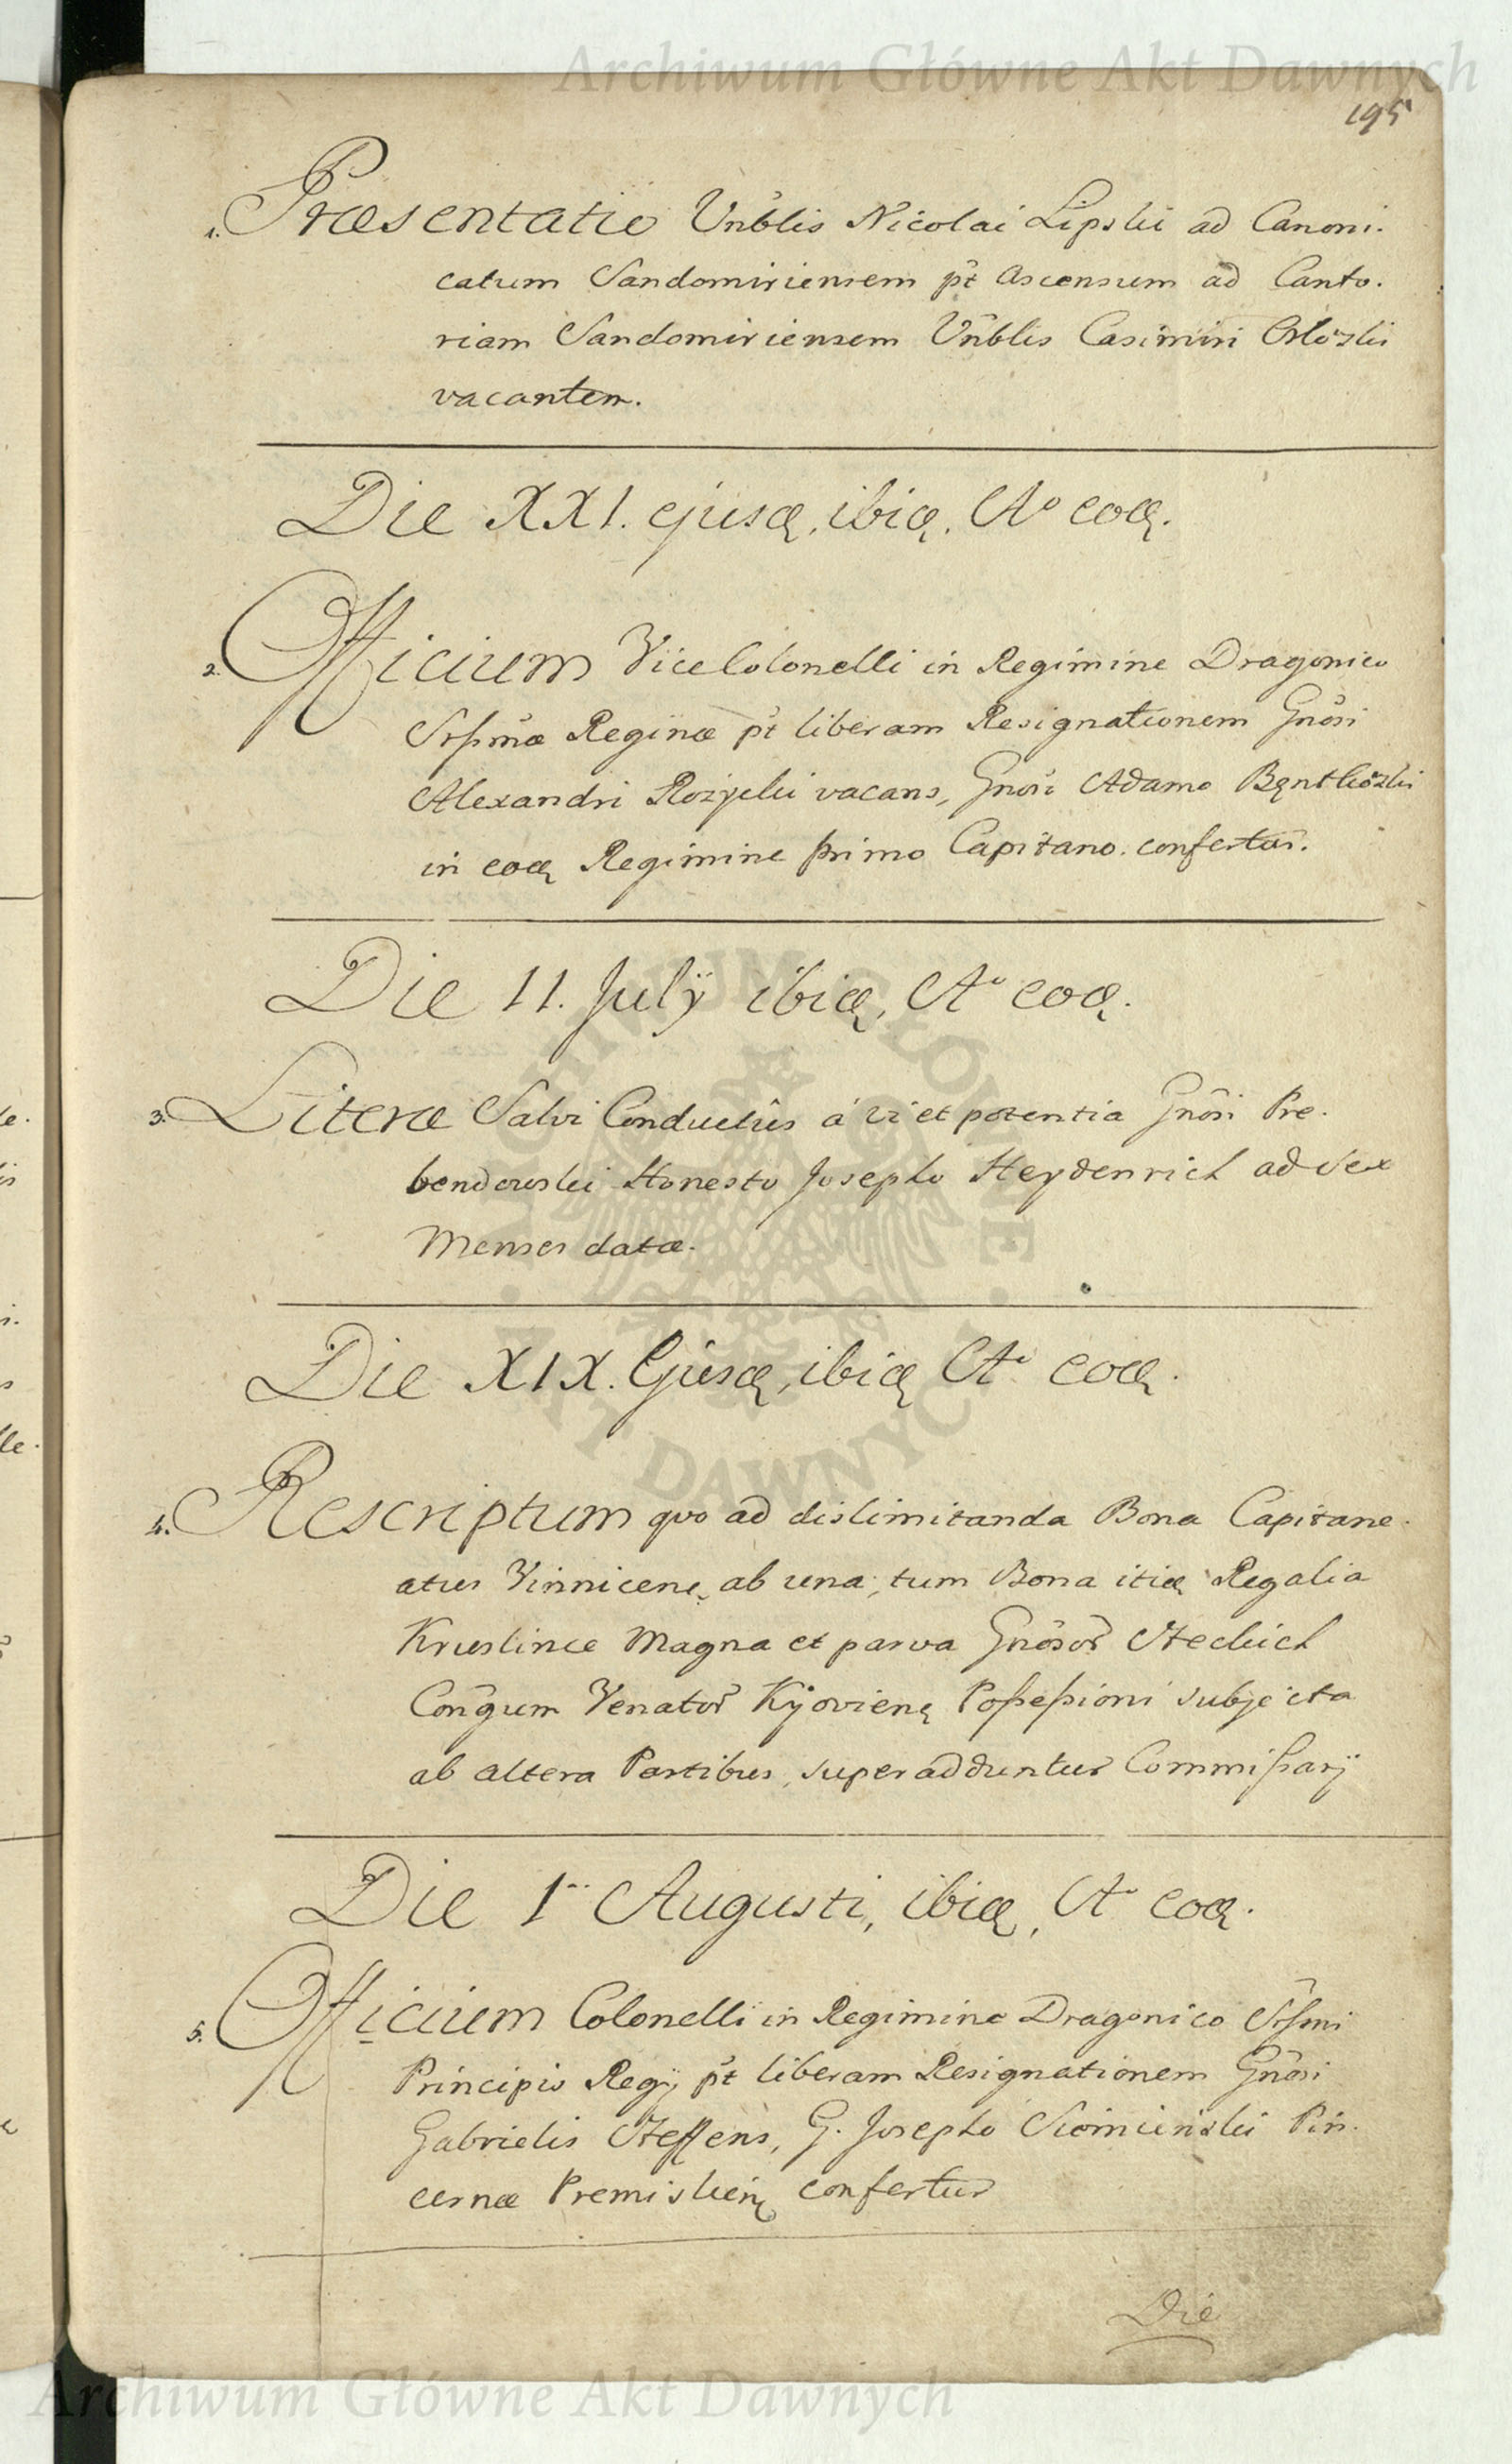 Archiwum Główne Akt Dawnych
195
1. Præsentatio Vnblis Nicolai Lipski ad Canoni.
catum Sandomiriensem pt Ascensum ad Canto.
riam Sandomiriensem Vnblis Casimiri
vacantem.
Die XXI. ejusdę, ibidę. Ao eodę.
2. Officium ViceColonelli in Regimine Dragonico
Srßmæ Reginæ pt liberam Resignationem Gnosi
Alexandri vacans, Gnoso Adamo
in eodę Regimine primo Capitano. confertur.
Die 11. Julÿ ibidę, Ao eodę.
3. Literæ Salvi Conductûs á vi et potentia Gnosi Pre.
bendowski Honesto Josepho Heydenrich ad sex
Menses datæ.
Die XIX. Ejusdę, ibidę Ao eodę.
4. Rescriptum quo ad dislimitanda Bona Capitane.
atus Vinnicenę ab una, tum Bona itidę Regalia
Kruslince Magna et parva Gnosor Steckich
Conĝum Venator Kijovienę Poßeßioni subjecta
ab altera Partibus, superadduntur Commißarÿ
Die 1ma Augusti, ibidę, Ao eodę.
5. Officium Colonelli in Regimine Dragonico Srßmi
Principis Regÿ pt liberam Resignationem Gnosi
Gabrielis Steffens, G. Josepho Siemieński Pin.
cernæ Premislienę confertur
Die
Archiwum Główne Akt Dawnych